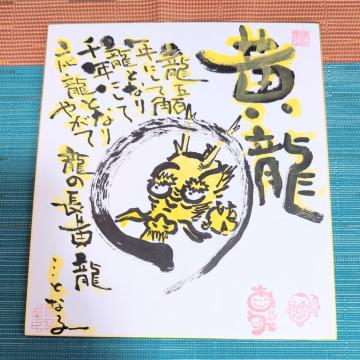 黄龍
龍五百
年にて角
龍となり
千年にして
応龍となり
やがて
龍の長黄龍
となる